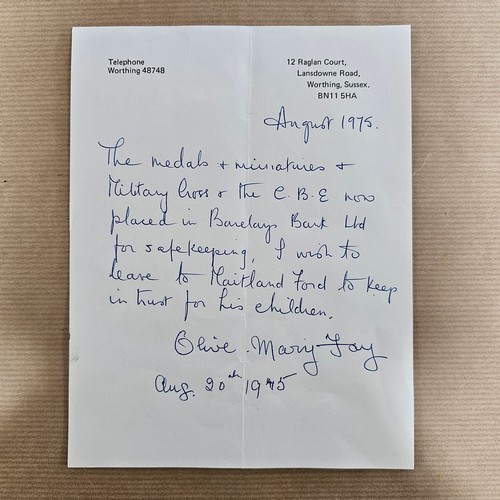 Telephone
Worthing 48748
12 Raglan Court,
Lansdowne Road,
Worthing, Sussex.
BN11 5HA
August 1975.
The medals + miniatures +
Military Cross & the C.B.E now
placed in Barclays Bank Ltd
for safekeeping, I wish to
leave to Maitland Ford to keep
in trust for his children.
Olive Mary
Aug. 20th 1975